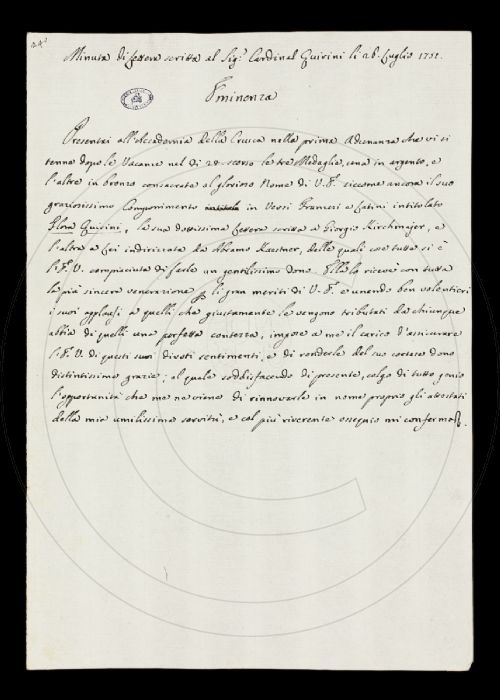 24
Minuta di Lettera scritta al Sig.r Cardinal Quirini li 26. Luglio 1751.
Eminenza
Presentai all'Accademia della Crusca nella prima Adunanza che vi si
tenne dopo le Vacanze nel dì 22 scorso le tre Medaglie, una in argento, e
l'altre in bronzo consacrate al glorioso Nome di V. E. siccome ancora il suo
graziosissimo Componimento in Versi Franzesi e Latini intitolato
Flora Quirini, la sua dottissima Lettera scritta a Giorgio Kirchmajer, e
l'altra a Lei indirizzata da Abramo Kaestner, delle quali cose tutte si è
l'E. V. compiaciuta di farle un gentilissimo dono. Ella lo ricevé con tutta
la più sincera venerazione p gran meriti di V. E. e unendo ben volentieri
i suoi applausi a quelli che giustamente le vengono tributati da chiunque
abbia di quelli una perfetta contezza, impose a me il carico d'assicurare
l'E. V. di questi suoi divoti sentimenti, e di renderle del suo cortese dono
distintissime grazie; al quale soddisfacendo di presente, colgo di tutto genio
l'opportunità che me ne viene di rinnovarle in nome proprio gli attestati
della mia umilissima servitù, e col più riverente ossequio mi confermo